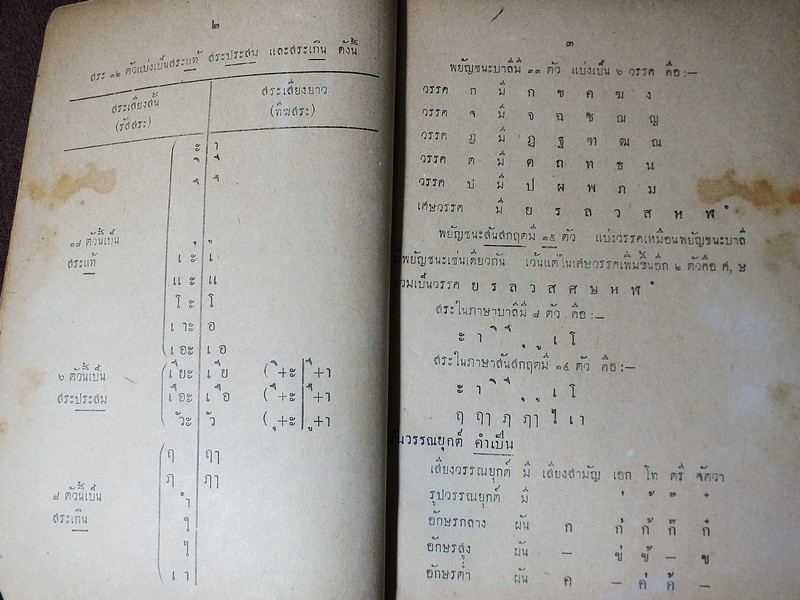 ๒
สระ ๓๒ ตัวแบ่งเป็นสระแท้ สระประสม และสระเกิน ดังนี้
สระเสียงสั้น สระเสียงยาว
(รัสสระ) (ทีฆสระ)
ะ า
ิ ี
ึ ื
ุ ู
๑๘ ตัวนี้เป็น
สระแท้
เ ะ เ
แ ะ แ
โ ะ โ
เ าะ อ
เ อะ เ อ
๖ ตัวนี้เป็น เ ียะ เ ีย ( ิ+ะ ี+า
สระประสม เ ือะ เ ือ ( ึ+ะ ื+า
ัวะ ัว ( ุ+ะ ู+า
ฤ ฤๅ
ฦ ฦๅ
๘ ตัวนี้เป็น ำ
สระเกิน ใ
ไ
เ า
๓
พยัญชนะบาลีมี ๓๓ ตัว แบ่งเป็น ๖ วรรค คือ :—
วรรค ก มี ก ข ค ฆ ง
วรรค จ มี จ ฉ ช ฌ ญ
วรรค ฏ มี ฏ ฐ ฑ ฒ ณ
วรรค ต มี ต ถ ท ธ น
วรรค ป มี ป ผ พ ภ ม
เศษวรรค มี ย ร ล ว ส ห ฬ ํ
พยัญชนะสันสกฤตมี ๓๕ ตัว แบ่งวรรคเหมือนพยัญชนะบาลี
มีพยัญชนะเช่นเดียวกัน เว้นแต่ในเศษวรรคเพิ่มขึ้นอีก ๒ ตัวคือ ศ, ษ
รวมเป็นวรรค ย ร ล ว ส ศ ษ ห ฬ ํ
สระในภาษาบาลีมี ๘ ตัว คือ :—
ะ า ิ ี ุ ู เ โ
สระในภาษาสันสกฤตมี ๑๔ ตัว คือ :—
ะ า ิ ี ุ ู เ โ
ฤ ฤๅ ฦ ฦๅ ไ เ า
ผันวรรณยุกต์ คำเป็น
เสียงวรรณยุกต์ มี เสียงสามัญ เอก โท ตรี จัตวา
รูปวรรณยุกต์ มี ่ ้ ๊ ๋
อักษรกลาง ผัน ก ก่ ก้ ก๊ ก๋
อักษรสูง ผัน — ข่ ข้ — ข
อักษรต่ำ ผัน ค — ค่ ค้ —